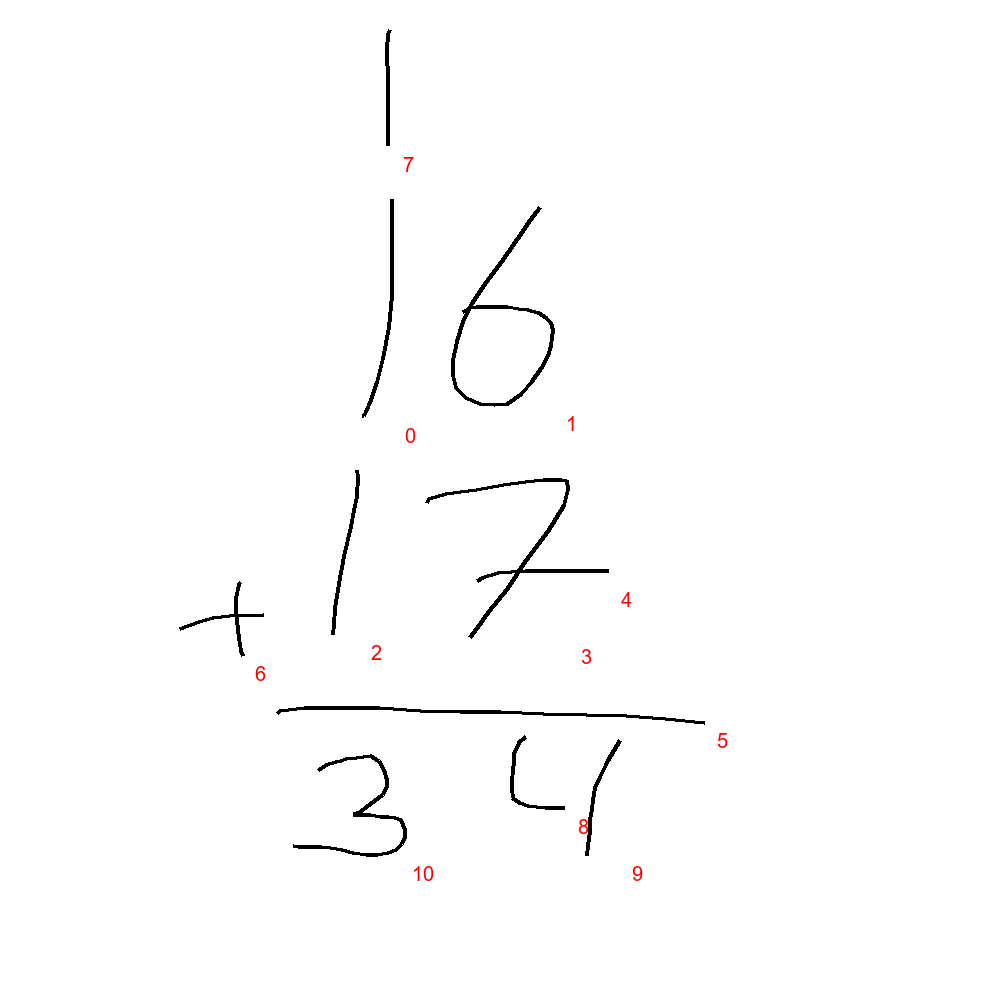 1
7
16
0 1
+ 17
4
6 2 3
5
34
8
10 9